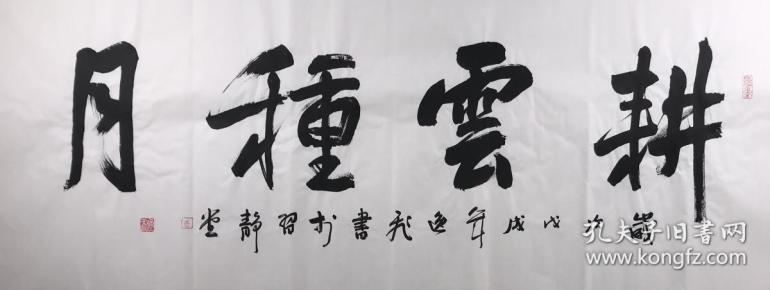 耕雲種月
歲次戊戌年逸飛書於習靜堂
孔夫子旧书网
www.kongfz.com